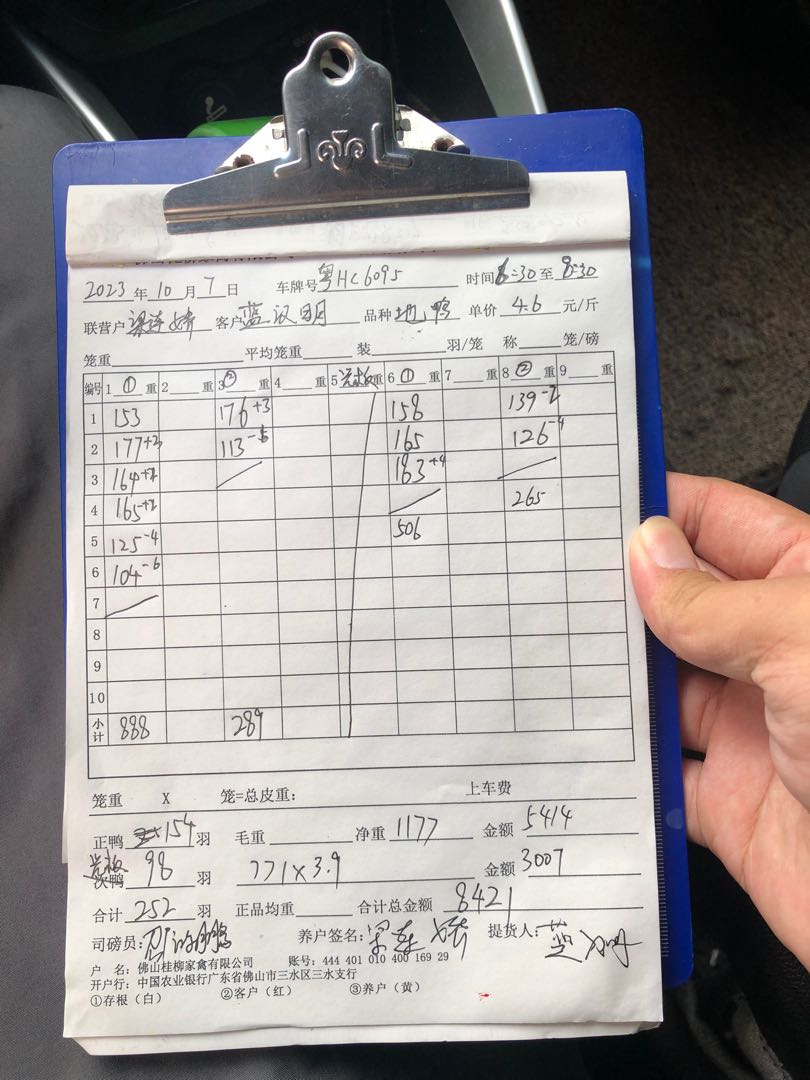 2023 年 10 月 7 日 车牌号 粤HC6095 时间 6:30 至 8:30
联营户 梁连娇 客户 蓝汉明 品种 地鸭 单价 4.6 元/斤
笼重 平均笼重 装 羽/笼 称 笼/磅
编号 1 ① 重 2 重 3 ② 重 4 重 5 重 6 ① 重 7 重 8 ② 重 9 重
1 153 176+3 158 139-2
2 177+2 113-5 165 126-4
3 164+2 183+4
4 165+2 265
5 125-4 506
6 104-6
7
8
9
10
小计 888 289
笼重 X 笼=总皮重: 上车费
正鸭 154 羽 毛重 净重 1177 金额 5414
次鸭 98 羽 771×3.9 金额 3007
合计 252 羽 正品均重 合计总金额 8421
司磅员: 养户签名: 提货人:
户 名: 佛山桂柳家禽有限公司 账号: 444 401 010 400 169 29
开户行: 中国农业银行广东省佛山市三水区三水支行
①存根(白) ②客户(红) ③养户(黄)